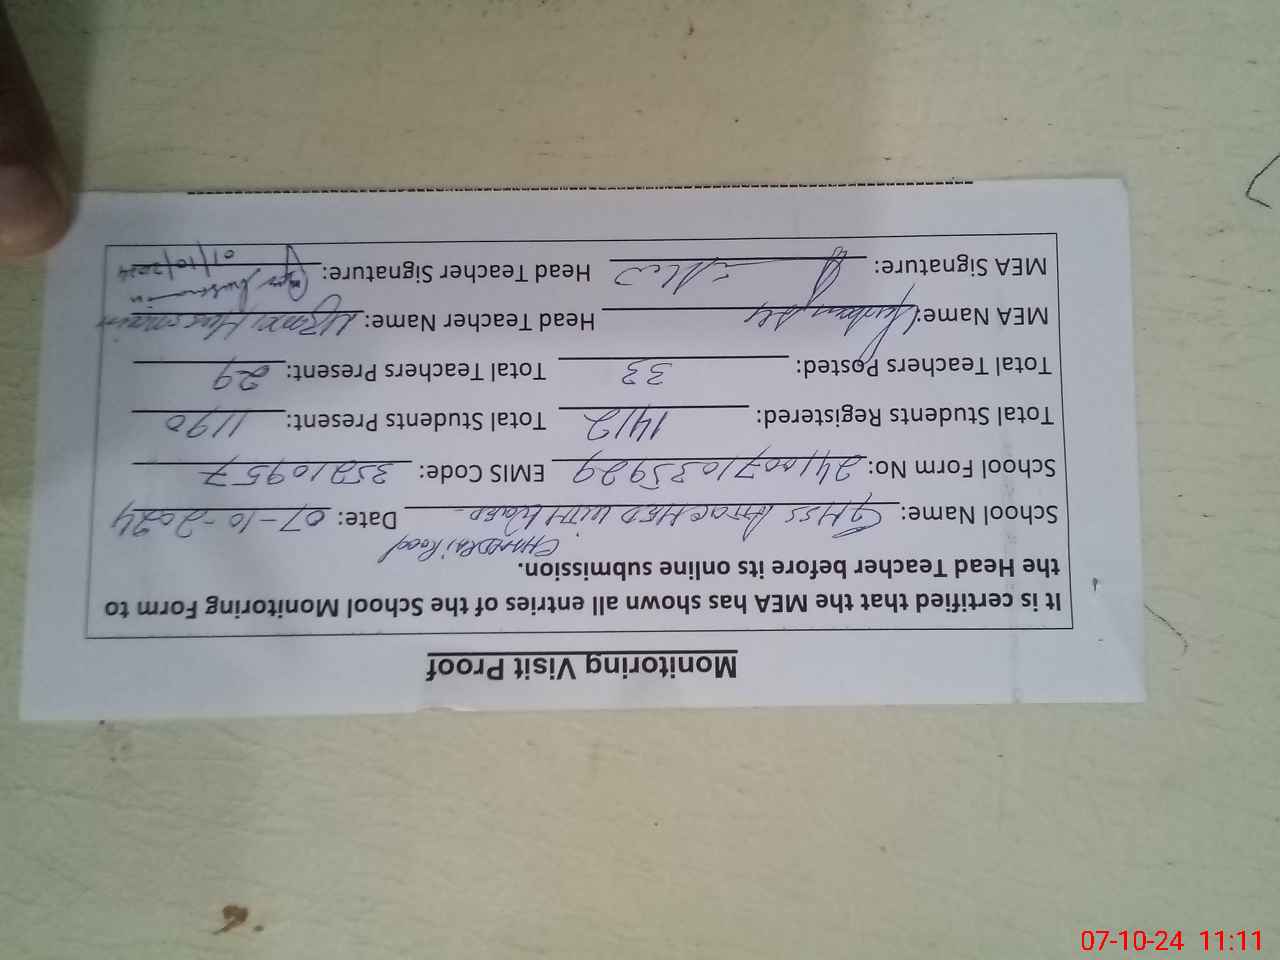 Monitoring Visit Proof
It is certified that the MEA has shown all entries of the School Monitoring Form to
the Head Teacher before its online submission.
School Name: GHSS ATTACHED WITH Date: 07-10-2024
School Form No: 2410071035929 EMIS Code: 35210957
Total Students Registered: 1412 Total Students Present: 1190
Total Teachers Posted: 33 Total Teachers Present: 29
MEA Name: Head Teacher Name:
MEA Signature: Head Teacher Signature:
07-10-24 11:11